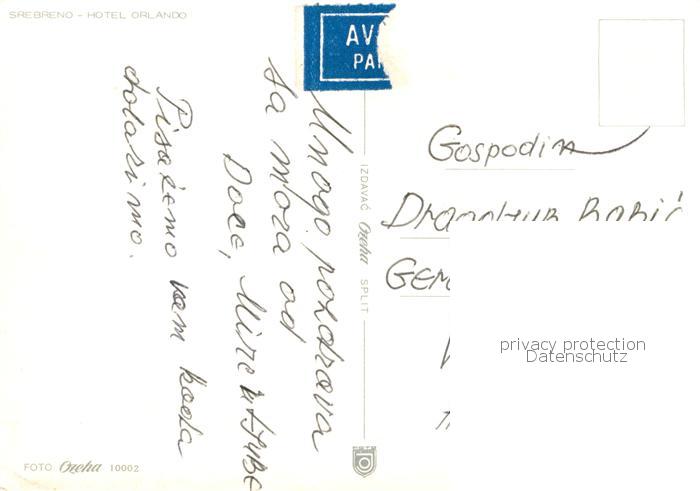 SREBRENO - HOTEL ORLANDO
AV
PA
Mnogo pozdrava
sa mora od
Doce, Mire i Ljube
Pisaćemo vam kada
dolazimo.
IZDAVAČ Ozeha SPLIT
Gospodin
Babić
GEM
privacy protection
Datenschutz
FOTO Ozeha 10002
FOTO